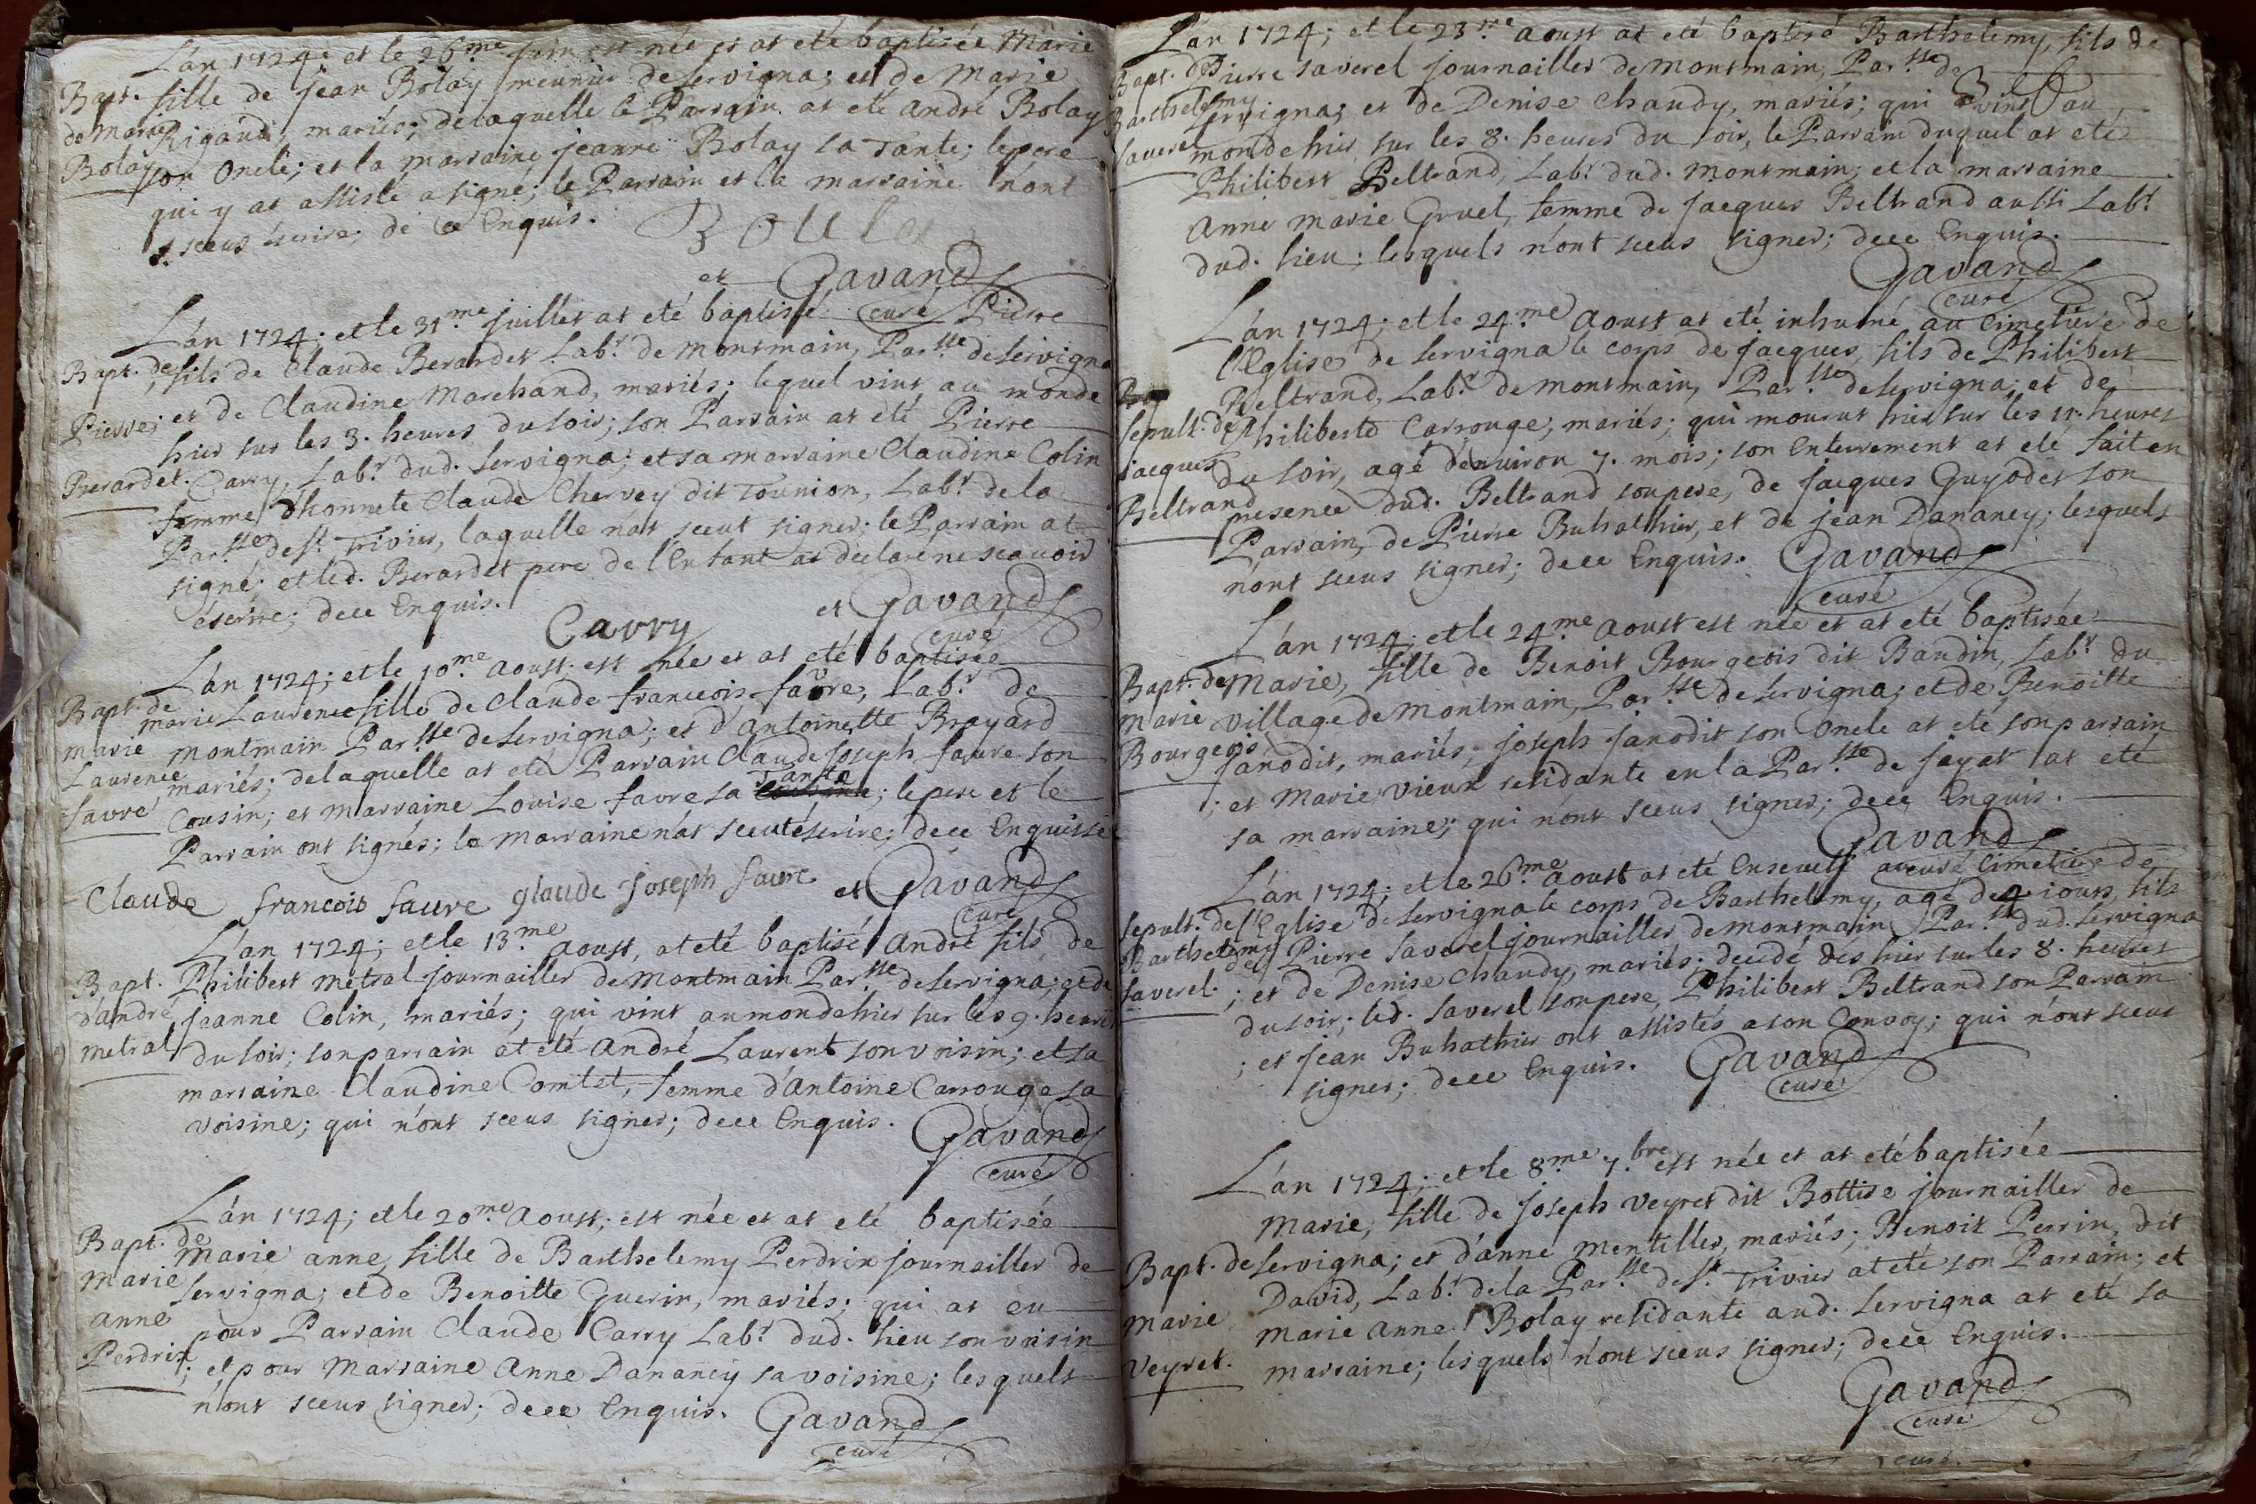 L'an 1724; et le 26.me juin est née et at eté baptisée Marie
Bapt. fille de Jean Bolay meunier de Servigna; et de Marie
de Marie Rigaud, mariés; de laquelle le Parrain at eté André Bolay
Bolay son Oncle; et la marraine jeanne Bolay sa Tante; le pere
qui y at assisté a signé; le Parrain et la marraine n'ont
sceus écrire; de ce Enquis.
et Gavand
curé
L'an 1724; et le 31.me juillet at eté baptisé Pierre
Bapt. de fils de Claude Berardet Lab.r de Montmain, Par.sse de Servigna
Pierre; et de Claudine Marchand, mariés; lequel vint au monde
hier sur les 3. heures du soir; son Parrain at eté Pierre
Berardet. Carry, Lab.r dud. Servigna; et sa marraine Claudine Colin
femme d'honnete Claude Chervey dit Tounion, Lab.r de la
Par.sse de S.t Trivier, laquelle n'at sceut signer; le Parrain at
signé; et led. Berardet pere de l'Enfant at déclaré ne scavoir
écrire; de ce Enquis.
Carry et Gavand
curé
L'an 1724; et le 10.me Aoust est née et at eté baptisée
Bapt. de marie Laurence fille de Claude francois favre, Lab.r de
Marie montmain Par.sse de Servigna; et d'Antoinette Brayard
Laurence mariés; de laquelle at eté Parrain Claude Joseph favre son
favre Cousin; et marraine Louise favre sa Tante; le pere et le
Parrain ont signés; la marraine n'at sceut écrire; de ce Enquise
Claude francois faure glaude joseph faure et Gavand
curé
L'an 1724; et le 13.me Aoust, at eté baptisé André fils de
Bapt. Philibert metral journailler de montmain Par.sse de Servigna; et de
d'andré jeanne Colin, mariés; qui vint au monde hier sur les 9. heures
metral du soir; son parrain at eté André Laurent son voisin; et sa
marraine Claudine Comtet, femme d'Antoine Carrouge sa
voisine; qui n'ont sceus signer; de ce Enquis.
Gavand
curé
L'an 1724; et le 20.me Aoust; est née et at eté baptisée
Bapt. de Marie anne, fille de Barthelemy Perdrix journailler de
Marie Servigna; et de Benoitte Guerin, mariés; qui at eu
anne pour Parrain Claude Carry Lab.r dud. lieu son voisin
Perdrix; et pour Marraine Anne Dananey sa voisine; lesquels
n'ont sceus signer; de ce Enquis. Gavand
curé
L'an 1724; et le 23.me Aoust at eté baptisé Barthelemy, fils de
Bapt. de Pierre Saverel journailler de Montmain, Par.sse de
Barthelemy Servigna; et de Denise Chaudy, mariés; qui vint au
Saverel monde hier sur les 8. heures du soir, le Parrain duquel at eté
Philibert Beltrand, Lab.r dud. Montmain; et la marraine
Anne marie Gruel, femme de Jacques Beltrand aussi Lab.r
dud. lieu; lesquels n'ont sceus signer; de ce Enquis.
Gavand
curé
L'an 1724; et le 24.me Aoust at eté inhumé au Cimetiere de
l'Eglise de Servigna le corps de Jacques, fils de Philibert
Beltrand, Lab.r de Montmain, Par.sse de Servigna; et de
Sepult. de Philiberte Carrouge, mariés; qui mourut hier sur les 11. heures
Jacques du soir, agé d'environ 7. mois; son Enterrement at eté fait en
Beltrand presence dud. Beltrand son pere, de Jacques Guyodet son
Parrain, de Pierre Buhathier, et de Jean Dananey; lesquels
n'ont sceus signer; de ce Enquis. Gavand
curé
L'an 1724; et le 24.me Aoust est née et at eté baptisée
Bapt. de Marie, fille de Benoit Bourgeois dit Baudin, Lab.r du
Marie village de Montmain, Par.sse de Servigna; et de Benoitte
Bourgeois Janodit, mariés; Joseph Janodit son Oncle at eté son parrain
; et Marie Vieux residante en la Par.sse de Jayat at eté
sa marraine; qui n'ont sceus signer; de ce Enquis.
Gavand
curé
L'an 1724; et le 26.me Aoust at eté Enseveli au Cimetiere de
Sepult. de l'Eglise de Servigna le corps de Barthelemy, agé de 4 iours, fils
Barthelemy de Pierre Saverel journailler de montmain Par.sse dud. Servigna
Saverel. ; et de Denise Chaudy, mariés; decedé dés hier sur les 8. heures
du soir; led. Saverel son pere, Philibert Beltrand son Parrain
; et Jean Buhathier ont assistés a son Convoy; qui n'ont sceus
signer; de ce Enquis. Gavand
curé
L'an 1724; et le 8.me 7.bre est née et at eté baptisée
Marie, fille de Joseph Veyret dit Bottise journailler de
Bapt. de Servigna; et d'Anne Mentiller, mariés; Benoit Perrin, dit
David, Lab.r de la Par.sse de S.t Trivier at eté son Parrain; et
Marie Marie Anne Bolay residante aud. Servigna at eté sa
Veyret. marraine; lesquels n'ont sceus signer; de ce Enquis.
Gavand
curé
curé